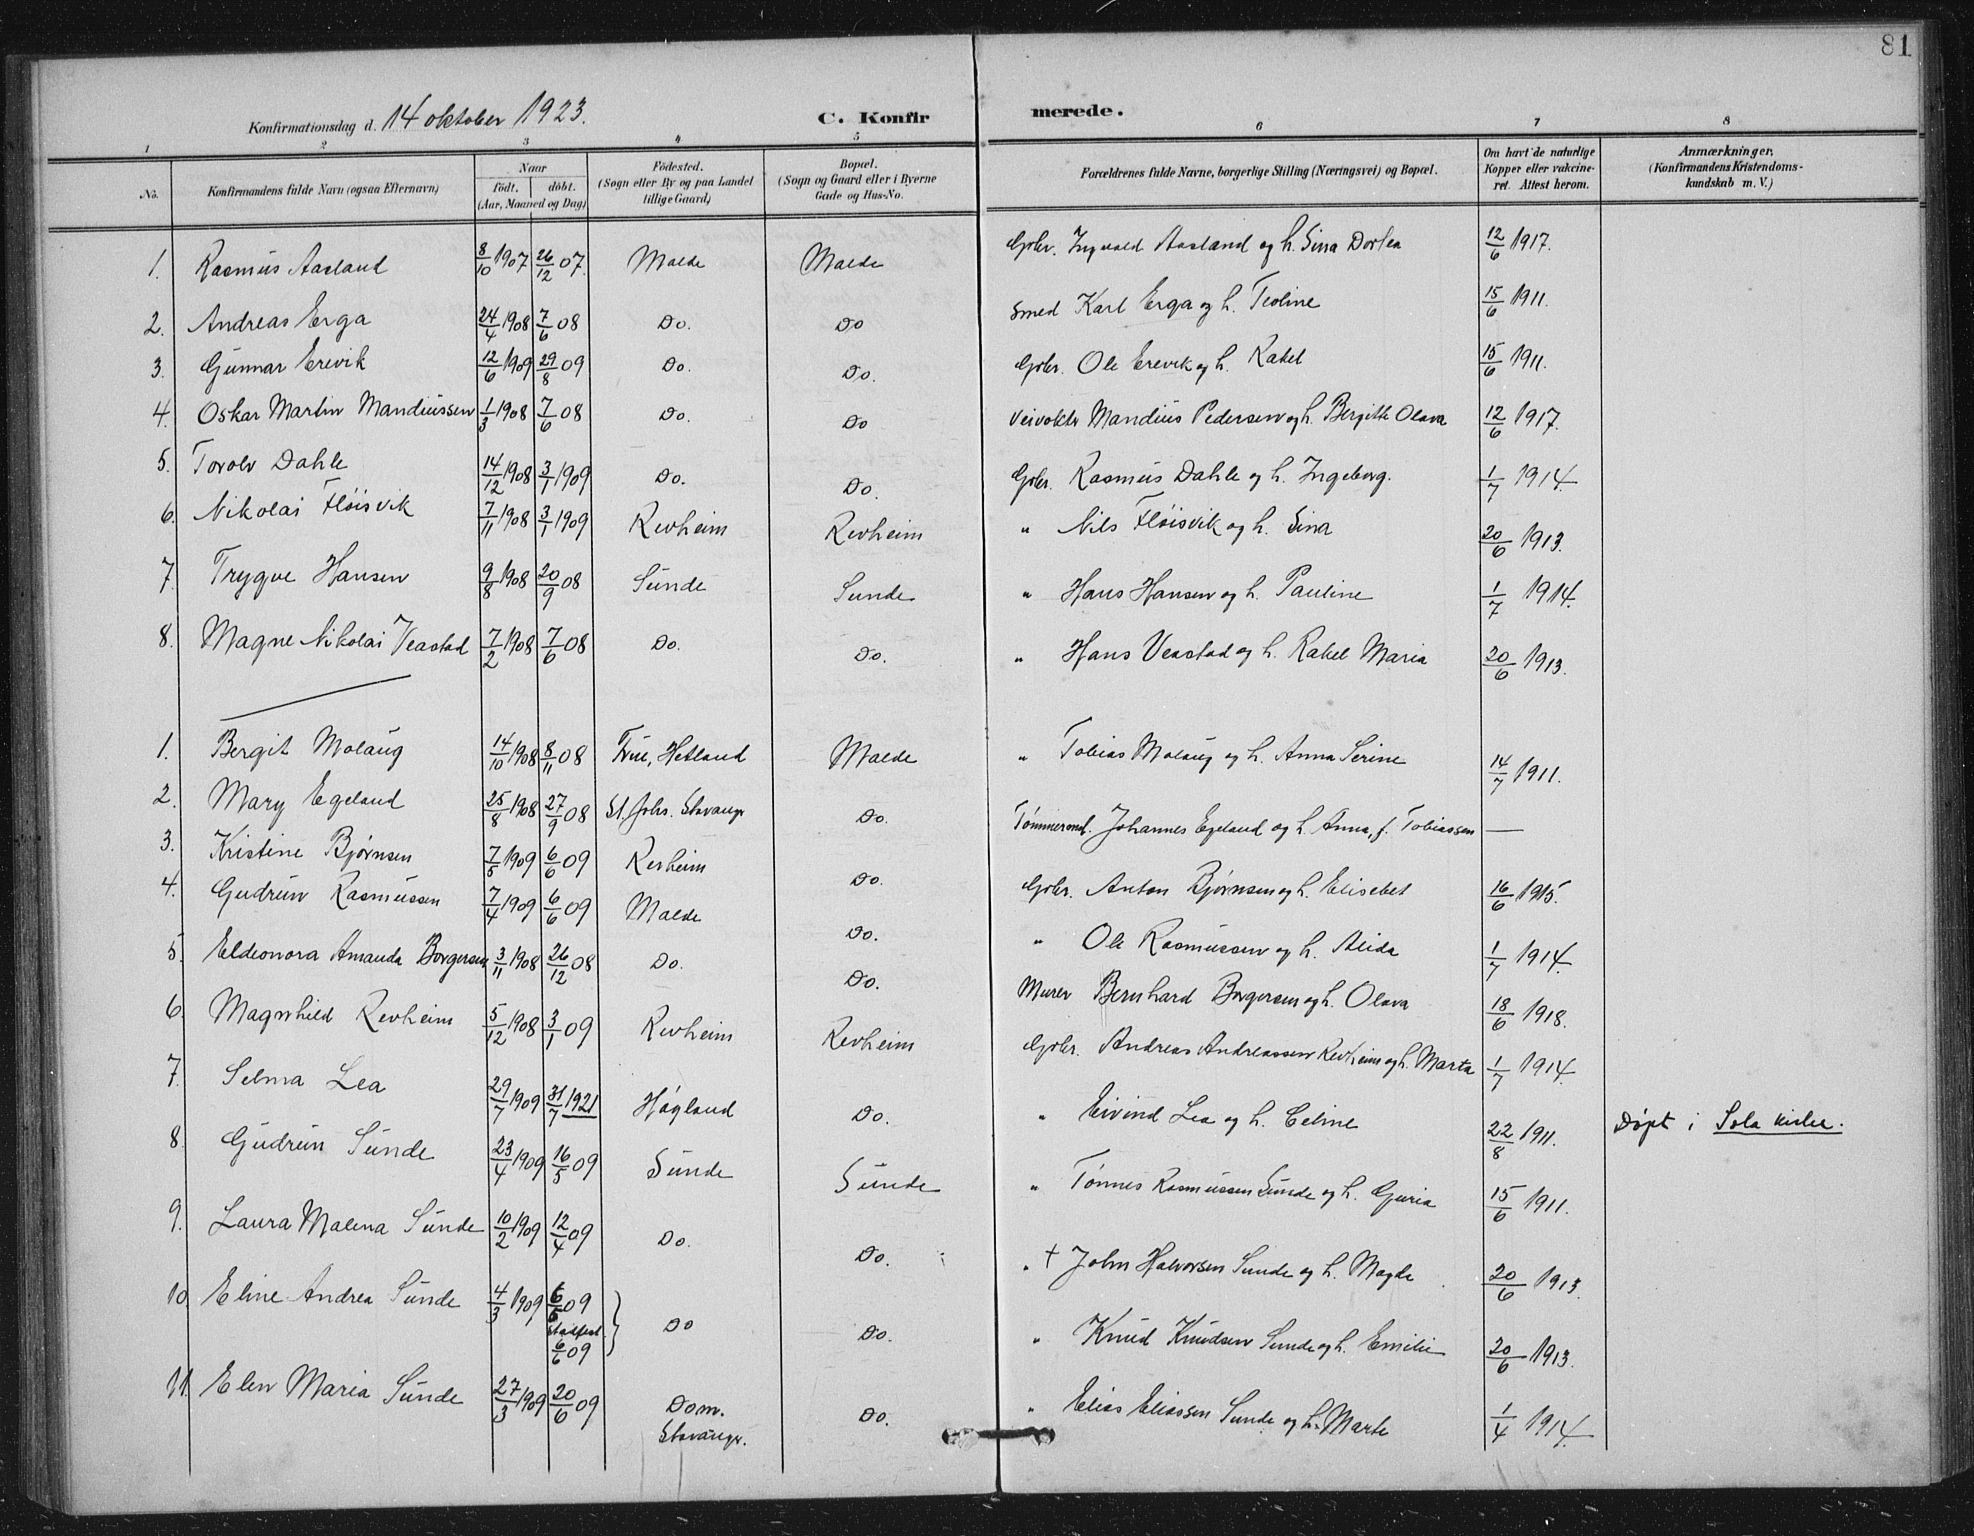 81
Konfirmationsdag d. 14 oktober 1923. C. Konfirmerede.
1 2 3 4 5 6 7 8
No. Konfirmandens fulde Navn (ogsaa Efternavn) Naar født. døbt. (Aar, Maaned og Dag) Fødested. (Sogn eller By og paa Landet tillige Gaard) Bopæl. (Sogn og Gaard eller i Byerne Gade og Hus-No. Forældrenes fulde Navne, borgerlige Stilling (Næringsvei) og Bopæl. Om havt de naturlige Kopper eller vakcineret. Attest herom. Anmærkninger, (Konfirmandens Kristendomskundskab m. V.)
1. Rasmus Aasland 8/10 1907 26/12 07. Malde Malde Gbr. Ingvald Aasland og h. Sina Dortea 12/6 1917.
2. Andreas Erga 24/4 1908 7/6 08 Do. Do Smed Karl Erga og h. Teoline 15/6 1911.
3. Gunnar Erevik 12/6 1909 29/8 09 Do. Do. Gbr. Ole Erevik og h. Rakel 15/6 1911.
4. Oskar Martin Mandiussen 1/3 1908 7/6 08 Do. Do Veivokter Mandius Pedersen og h. Bergitte Olava 12/6 1917.
5. Torolv Dahle 14/12 1908 3/1 1909 Do. Do. Gbr. Rasmus Dahle og h. Ingeborg. 1/7 1914.
6. Nikolai Fløisvik 7/11 1908 3/1 1909 Revheim Revheim " Nils Fløisvik og h. Sina 20/6 1913.
7. Trygve Hansen 9/8 1908 20/9 08 Sunde Sunde " Hans Hansen og h. Pauline 1/7 1914.
8. Magne Nikolai Veastad 7/2 1908 7/6 08 Do. Do. " Hans Veastad og h. Rakel Maria 20/6 1913.
1. Bergit Molaug 14/10 1908 8/11 08 Frue, Hetland Malde " Tobias Molaug og h. Anna Serine 14/7 1911.
2. Mary Egeland 25/8 1908 27/9 08 St. Johs. Stavanger Do. Tømmermd. Johannes Egeland og h. Anna, f. Tobiassen —
3. Kristine Bjørnsen 7/5 1909 6/6 09 Revheim Do. Gbr. Anton Bjørnsen og h. Elisebet 16/6 1915.
4. Gudrun Rasmussen 7/4 1909 6/6 09 Malde Do. " Ole Rasmussen og h. Alida 1/7 1914.
5. Eldeonora Amanda Borgersen 3/11 1908 26/12 08 Do. Do. Murer Bernhard Borgersen og h. Olava 18/6 1918.
6. Magnhild Revheim 5/12 1908 3/1 09 Revheim Revheim Gbr. Andreas Andreassen Revheim og h. Marta 1/7 1914.
7. Selma Lea 29/7 1909 31/7 1921 Høgland Do. " Eivind Lea og h. Celine 22/8 1911. Døpt i Sola kirke.
8. Gudrun Sunde 23/4 1909 16/5 09 Sunde Sunde " Tønnes Rasmussen Sunde og h. Guria 15/6 1911.
9. Laura Malena Sunde 10/2 1909 12/4 09 Do. Do. " † John Halvorsen Sunde og h. Magda 20/6 1913.
10. Eline Andrea Sunde 4/3 1909 6/5 09 Stadfest. 6/6 09 } Do Do. " Knud Knudsen Sunde og h. Emilie 20/6 1913.
11. Elen Maria Sunde 27/3 1909 20/6 09 Dom. Stavanger. Do. " Elias Eliassen Sunde og h. Marte 1/4 1914.